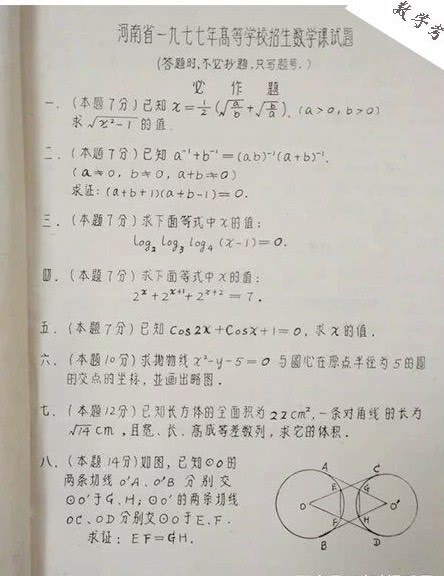 数学考
河南省一九七七年高等学校招生数学课试题
(答题时,不必抄题,只写题号.)
必作题
一.(本题7分)已知 x=½(√(a/b)+√(b/a)). (a>0,b>0)
求 √(x²-1) 的值.
二.(本题7分)已知 a⁻¹+b⁻¹=(ab)⁻¹(a+b)⁻¹.
(a≠0, b≠0, a+b≠0)
求证:(a+b+1)(a+b-1)=0.
三.(本题7分)求下面等式中x的值:
log₂log₃log₄(x-1)=0.
四.(本题7分)求下面等式中x的值:
2ˣ+2ˣ⁺¹+2ˣ⁺²=7.
五.(本题7分)已知 Cos2x+Cosx+1=0, 求x的值.
六.(本题10分)求抛物线 x²-y-5=0 与圆心在原点半径为5的圆
的交点的坐标,並画出略图.
七.(本题12分)已知长方体的全面积为22cm²,一条对角线的长为
√14 cm,且宽、长、高成等差数列,求它的体积.
八.(本题14分)如图,已知⊙O的
两条切线O'A、O'B分别交
⊙O'于G、H;⊙O'的两条切线
OC、OD分别交⊙O于E.F.
求证:EF=GH.
A
C
E
G
O
O'
F
H
B
D